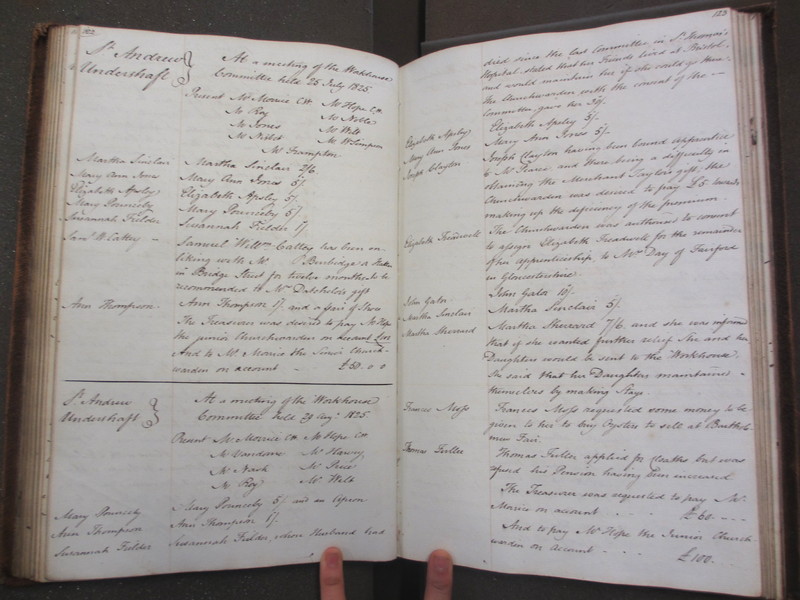 122
St Andrew
Undershaft
At a meeting of the Workhouse
Committee held 25 July 1825
Present Mr Morrice CW Mr Hope CW
Mr Roy Mr Noble
Mr Jones Mr Wilt
Mr Niblet Mr W Simpson
Mr Frampton
Martha Sinclair Martha Sinclair 7/6
Mary Ann Jones Mary Ann Jones 5/-
Elizabeth Apsley Elizabeth Apsley 5/-
Mary Ponneeby Mary Ponneeby 5/-
Susannah Fielder Susannah Fielder 1/-
Saml W. Cattey Samuel Willm Cattey has been on
liking with Mr Burbidge a Hatter
in Bridge Street for twelve months to be
recommended to Mr Datchelor's gift
Ann Thompson Ann Thompson 1/- and a pair of Shoes
The Treasurer was desired to pay Mr Hope
the junior Churchwarden on account £100
And to Mr Morris the Senior Church-
warden on account £50..0..0
St Andrew
Undershaft
At a meeting of the Workhouse
Committee held 29 Augt 1825
Present Mr Morrice CW Mr Hope CW
Mr Vandome Mr Harvey
Mr Nash Mr Price
Mr Roy Mr Wilt
Mary Ponneeby Mary Ponneeby 5/- and an Apron
Ann Thompson Ann Thompson 1/-
Susannah Fielder Susannah Fielder, whose Husband had
123
died since the last Committee, in St Thomas's
Hospital, stated that her Friends lived at Bristol,
and would maintain her if she could go there,
the Churchwarden with the consent of the
Committee gave her 30/-
Elizabeth Apsley Elizabeth Apsley 5/-
Mary Ann Jones Mary Ann Jones 5/-
Joseph Clayton Joseph Clayton having been bound apprentice
to Mr Pearce, and there being a difficulty in
obtaining the Merchant Taylor's gift, the
Churchwarden was desired to pay £5 towards
making up the deficiency of the premium.
Elizabeth Treadwell The Churchwarden was authorized to consent
to assign Elizabeth Treadwell for the remainder
of her apprenticeship, to Mrs Day of Fairford
in Gloucestershire.
John Gator John Gator 10/-
Martha Sinclair Martha Sinclair 5/-
Martha Sherrard Martha Sherrard 7/6, and she was informed
that if she wanted further relief she and her
Daughters would be sent to the Workhouse.
She said that her Daughters maintained
themselves by making Stays.
Frances Moss Frances Moss requested some money to be
given to her to buy Oysters to sell at Bartholo-
mew Fair.
Thomas Fuller Thomas Fuller applied for Cloaths but was
refused his Pension having been increased
The Treasurer was requested to pay Mr
Morris on account £60
And to pay Mr Hope the Junior Church-
warden on account £100.